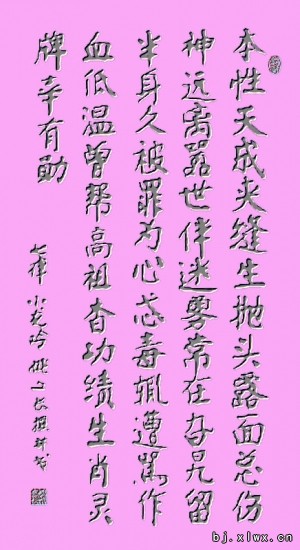 本性天成夹缝生抛头露面总伤
神远离嚣世伴迷雾常在旮旯留
半身久被罪为心忒毒辄遭骂作
血低温曾帮高祖查功绩生肖灵
牌幸有勋
七律 小龙吟 撰并书
bj.xlwx.cn